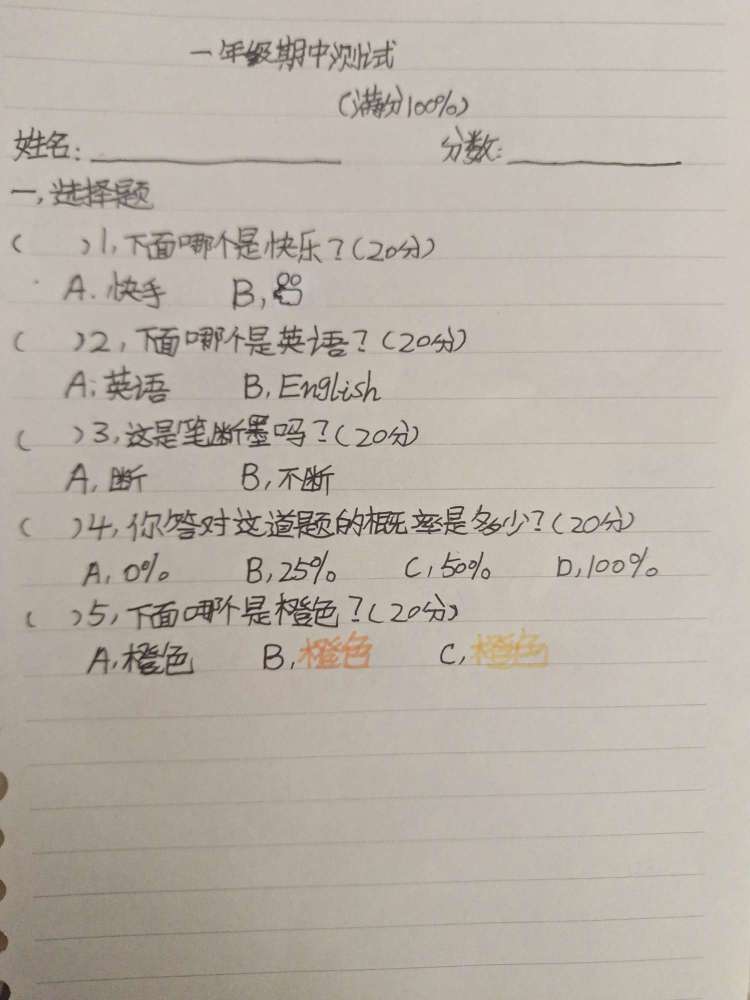 一年级期中测试
(满分100%)
姓名:____________ 分数:________
一,选择题
( )1,下面哪个是快乐?(20分)
A.快手 B,
( )2,下面哪个是英语?(20分)
A;英语 B,English
( )3,这是笔断墨吗?(20分)
A,断 B,不断
( )4,你答对这道题的概率是多少?(20分)
A,0% B,25% C,50% D,100%
( )5,下面哪个是橙色?(20分)
A,橙色 B,橙色 C,橙色